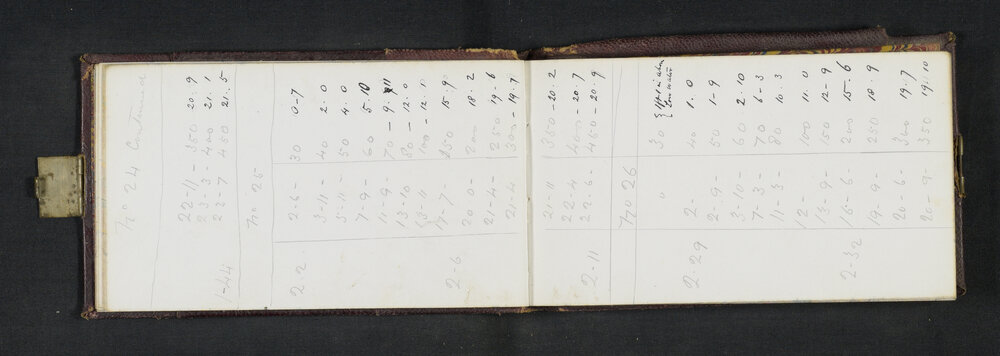 No 24 Continued
22-11- 350 20.9
23-3- 400 21.1
1-44 23-7 450 21.5
No 25
2.2 2-6- 30 0-7
3-11- 40 2.0
5-11- 50 4.0
7-9- 60 5.10
11-9- 70 - 9.11
13-10 80 - 12.0
100 - 12.10
2-6 17-7- 150 15.9
20-0- 200 18.2
21-4- 250 19-6
21-4 300 - 19.7
21-11 350 - 20.2
22-4 400 - 20.7
2-11 22-6- 450 - 20.9
No 26
" 30 { in
low water
2-29 2- 40 1.0
2-9- 50 1-9
3-10- 60 2.10
7-3- 70 6-3
11-3- 80 10.3
12- 100 11.0
13-9- 150 12-9
2-32 16-6- 200 15-6
19-9- 250 18.9
20-6- 300 19.7
20-9- 350 19.10